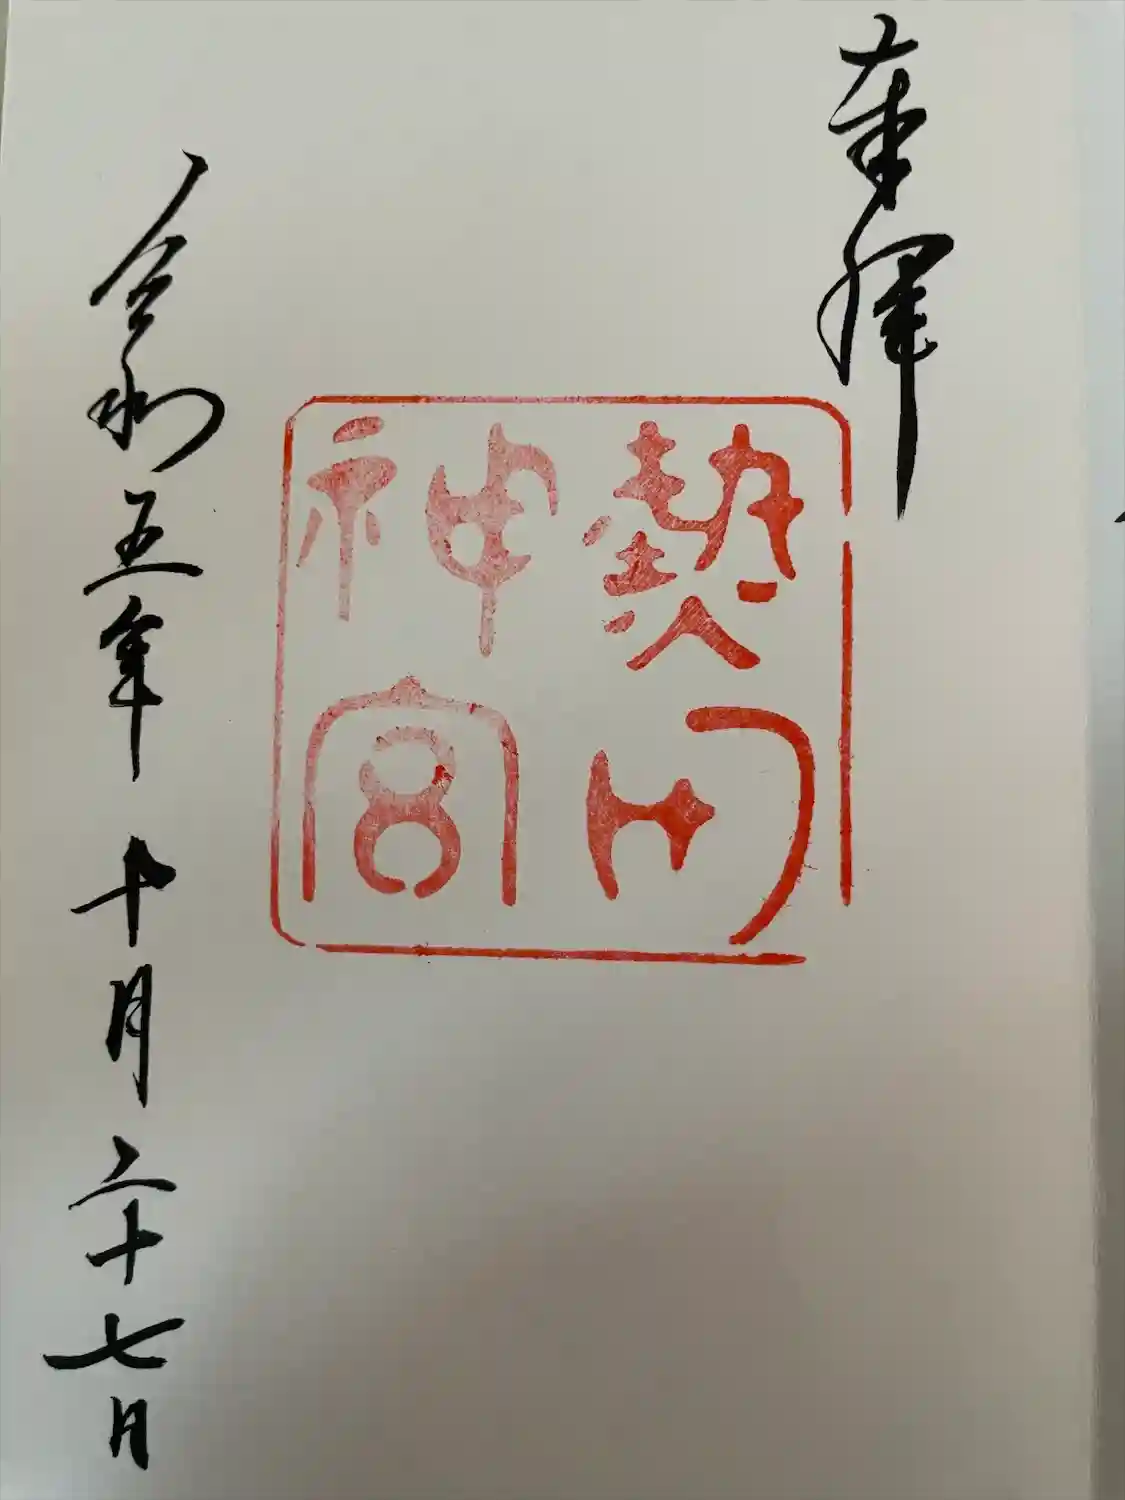 奉拝
熱田
神宮
令和五年 十月二十七日